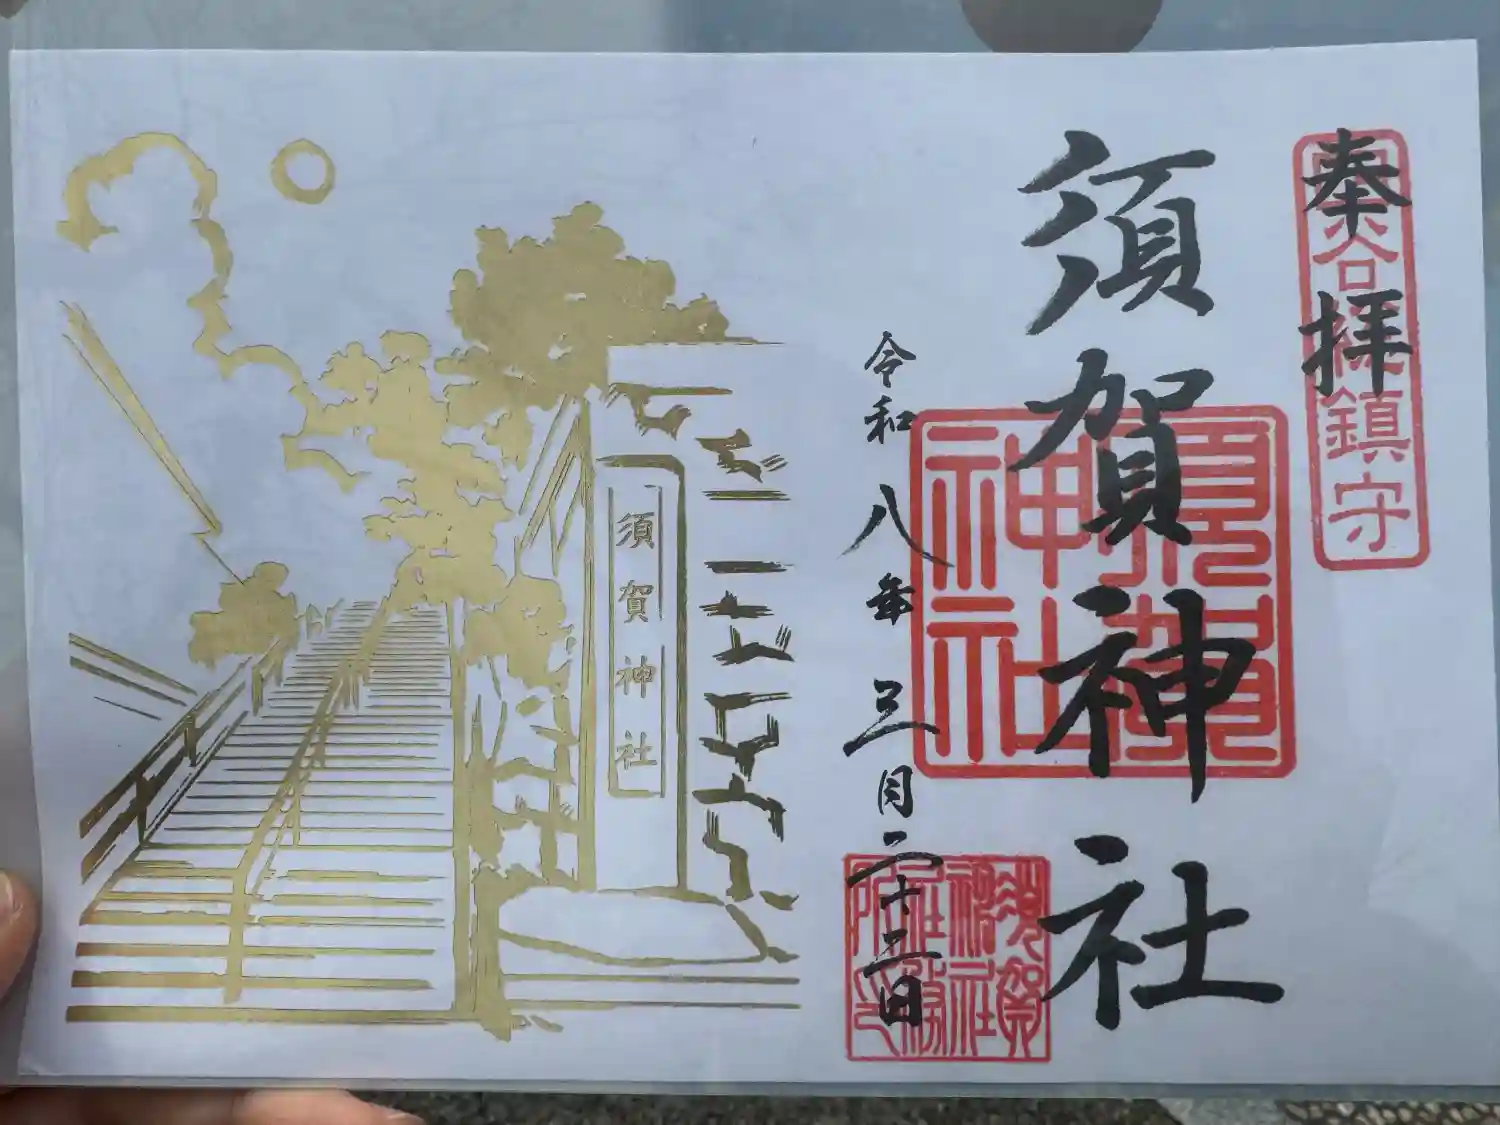 奉拝
谷鎮守
須賀神社
須賀神社
令和八年三月二十二日
須賀神社社務所印
須賀神社